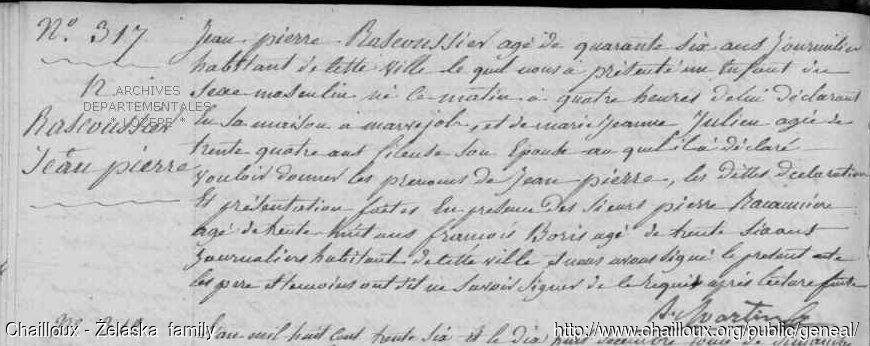 N.º 317
N
Rascoussier
Jean pierre
ARCHIVES
DEPARTEMENTALES
* LOZERE *
Jean pierre Rascoussier agé de quarante six ans Journalier
habitant de cette ville le quel nous à présenté un Enfant du
sexe masculin né ce matin à quatre heures de lui déclarant
En sa maison à marvejols, et de marie Jeanne Julien agée de
trente quatre ans fileuse son Epouse au quel il à déclaré
vouloir donner les prenoms de Jean pierre, les dittes déclaration
Et présentation faites En presence des sieurs pierre
agé de trente huit ans françois Boris agé de trente six ans
Journaliers habitant de cette ville Et nous avons signé le present acte
les pere Et temoins ont dit ne savoir signer de ce requis après lecture faite
Martin
L'an mil huit cent trente six et le dix decembre
Chailloux - Żelaska family
http://www.chailloux.org/public/geneal/